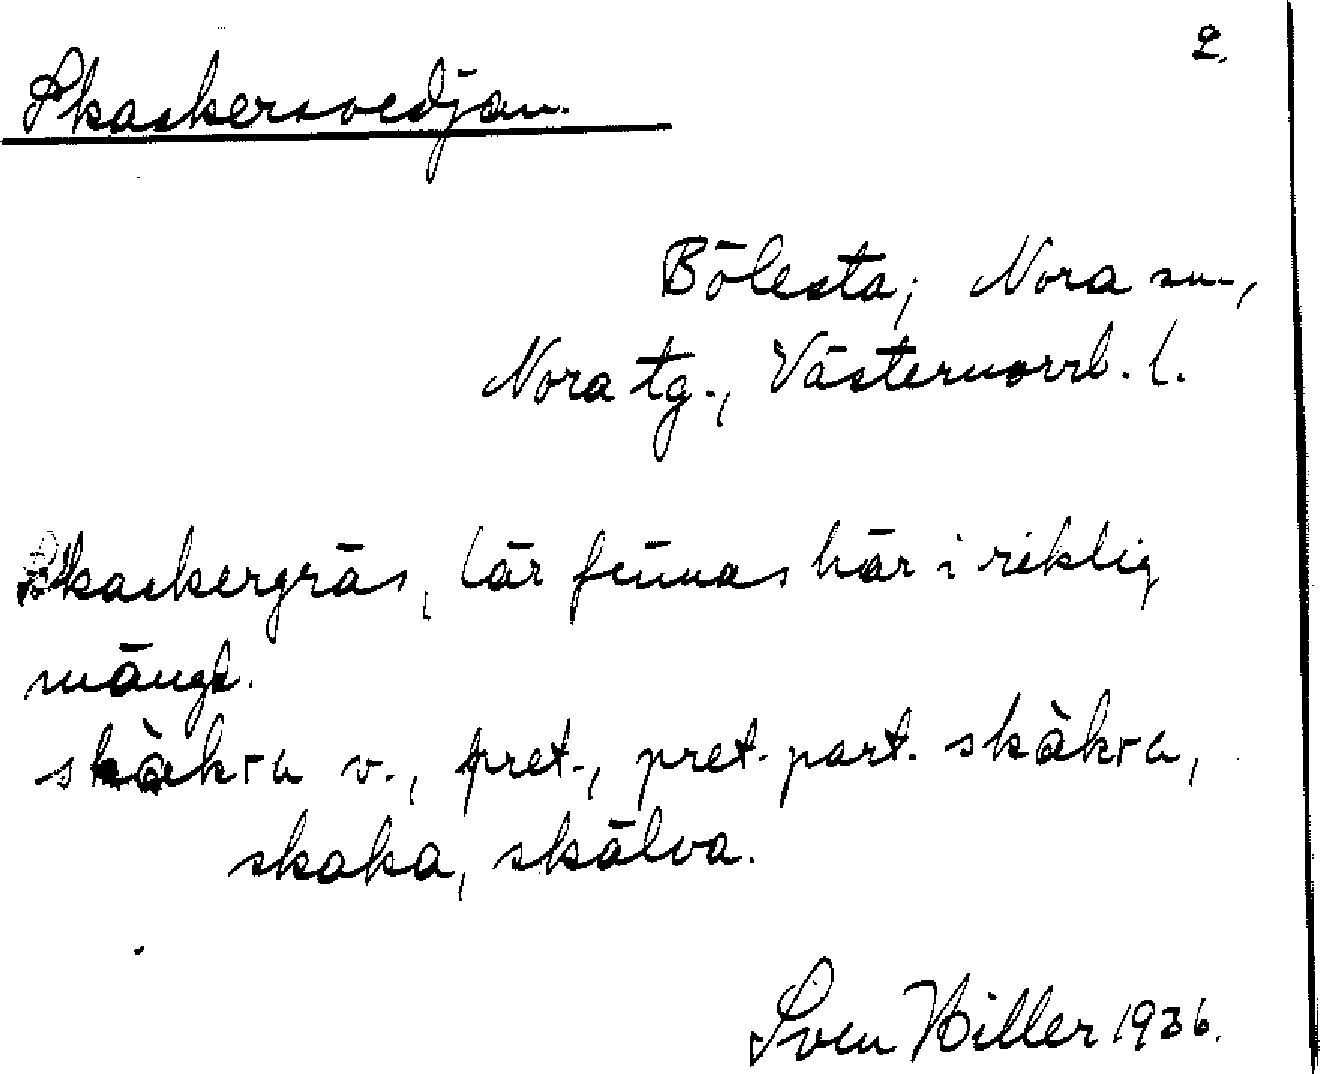 2.
Skaskersvedjan.
Bölesta; Nora sn.,
Nora tg., Västernorrl. l.
Skaskergräs, lär finnas här i riklig
mängd.
skàkra v., pret., pret. part. skàkra,
skaka, skälva.
Sven Hiller 1936.